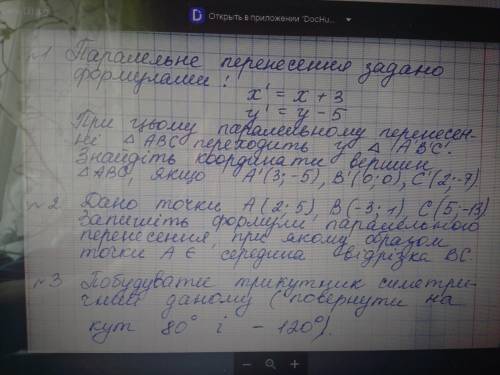 Открыть в приложении "DocHu...
№1 Паралельне перенесення задано
формулами:
x' = x + 3
y' = y - 5
При цьому паралельному перенесен-
ні △ABC переходить у △A'B'C'.
Знайдіть координати вершин
△ABC, якщо A'(3; -5), B'(0; 0), C'(2; -7)
№2 Дано точки A(2; 5) B(-3; 1), C(5; -13)
Запишіть формули паралельного
перенесення, при якому образом
точки A є середина відрізка BC.
№3 Побудувати трикутник симетри-
чний даному (повернути на
кут 80° і -120°).